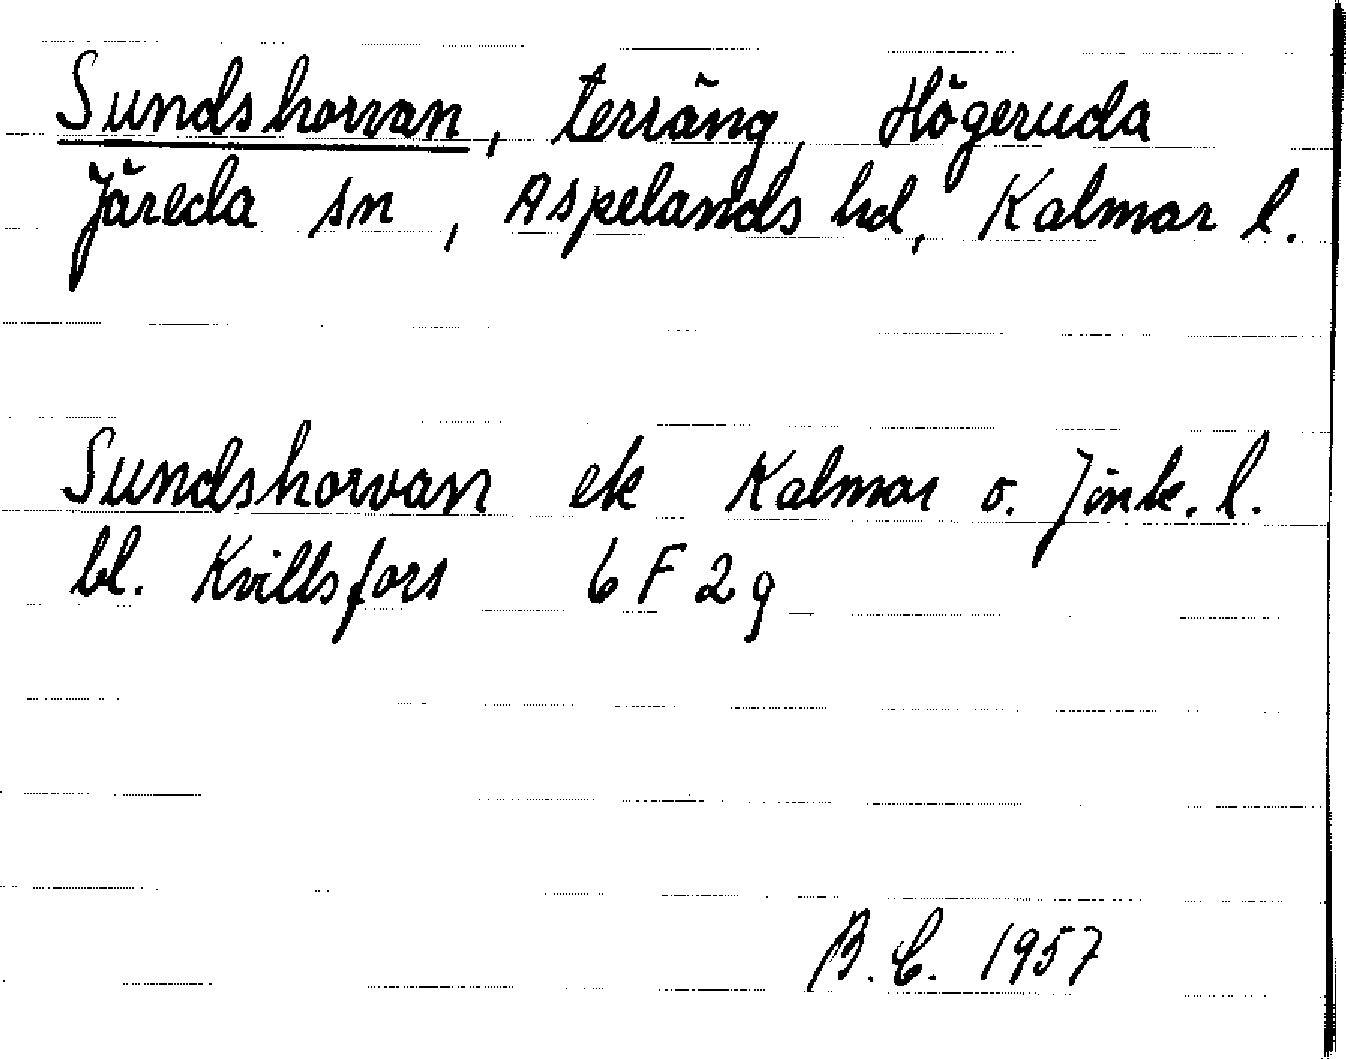 Sundshorvan, terräng, Högeruda
Järeda sn, Aspelands hd, Kalmar l.
Sundshorvan ek Kalmar o. Jönk. l.
bl. Kvillsfors 6 F 2 g
B.C. 1957